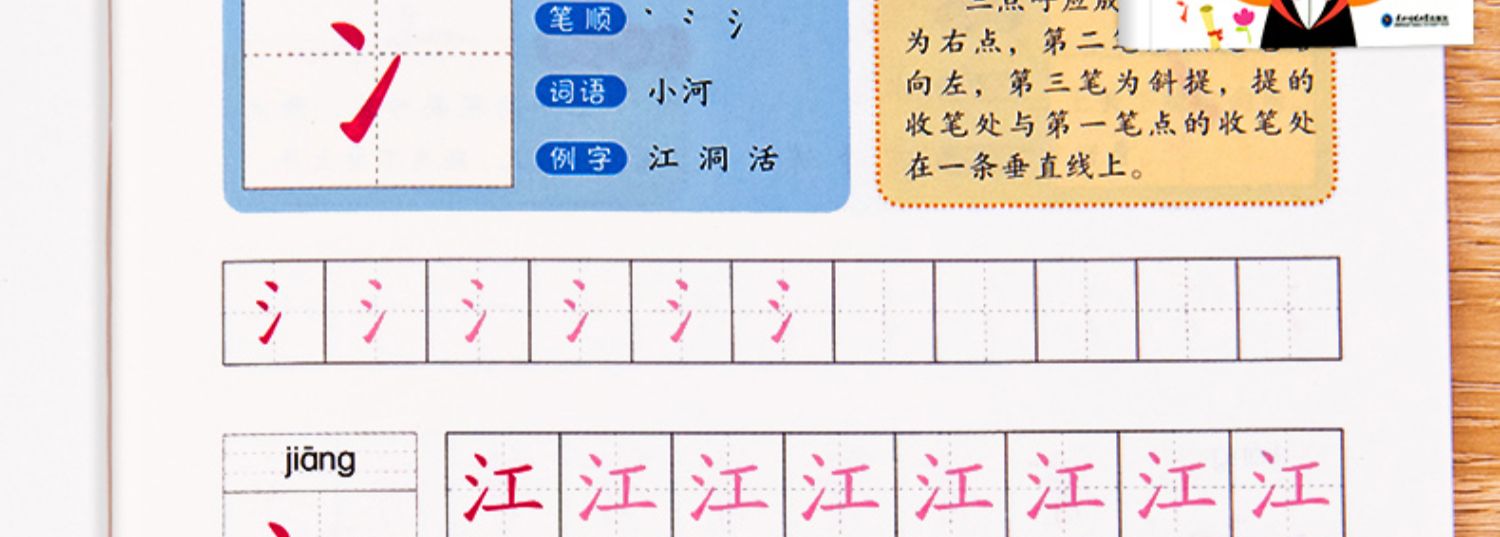 笔顺 丶 冫 氵
词语 小河
例字 江 洞 活
三点呼应成
为右点，第二笔
向左，第三笔为斜提，提的
收笔处与第一笔点的收笔处
在一条垂直线上。
氵 氵 氵 氵 氵 氵
jiāng
江 江 江 江 江 江 江 江